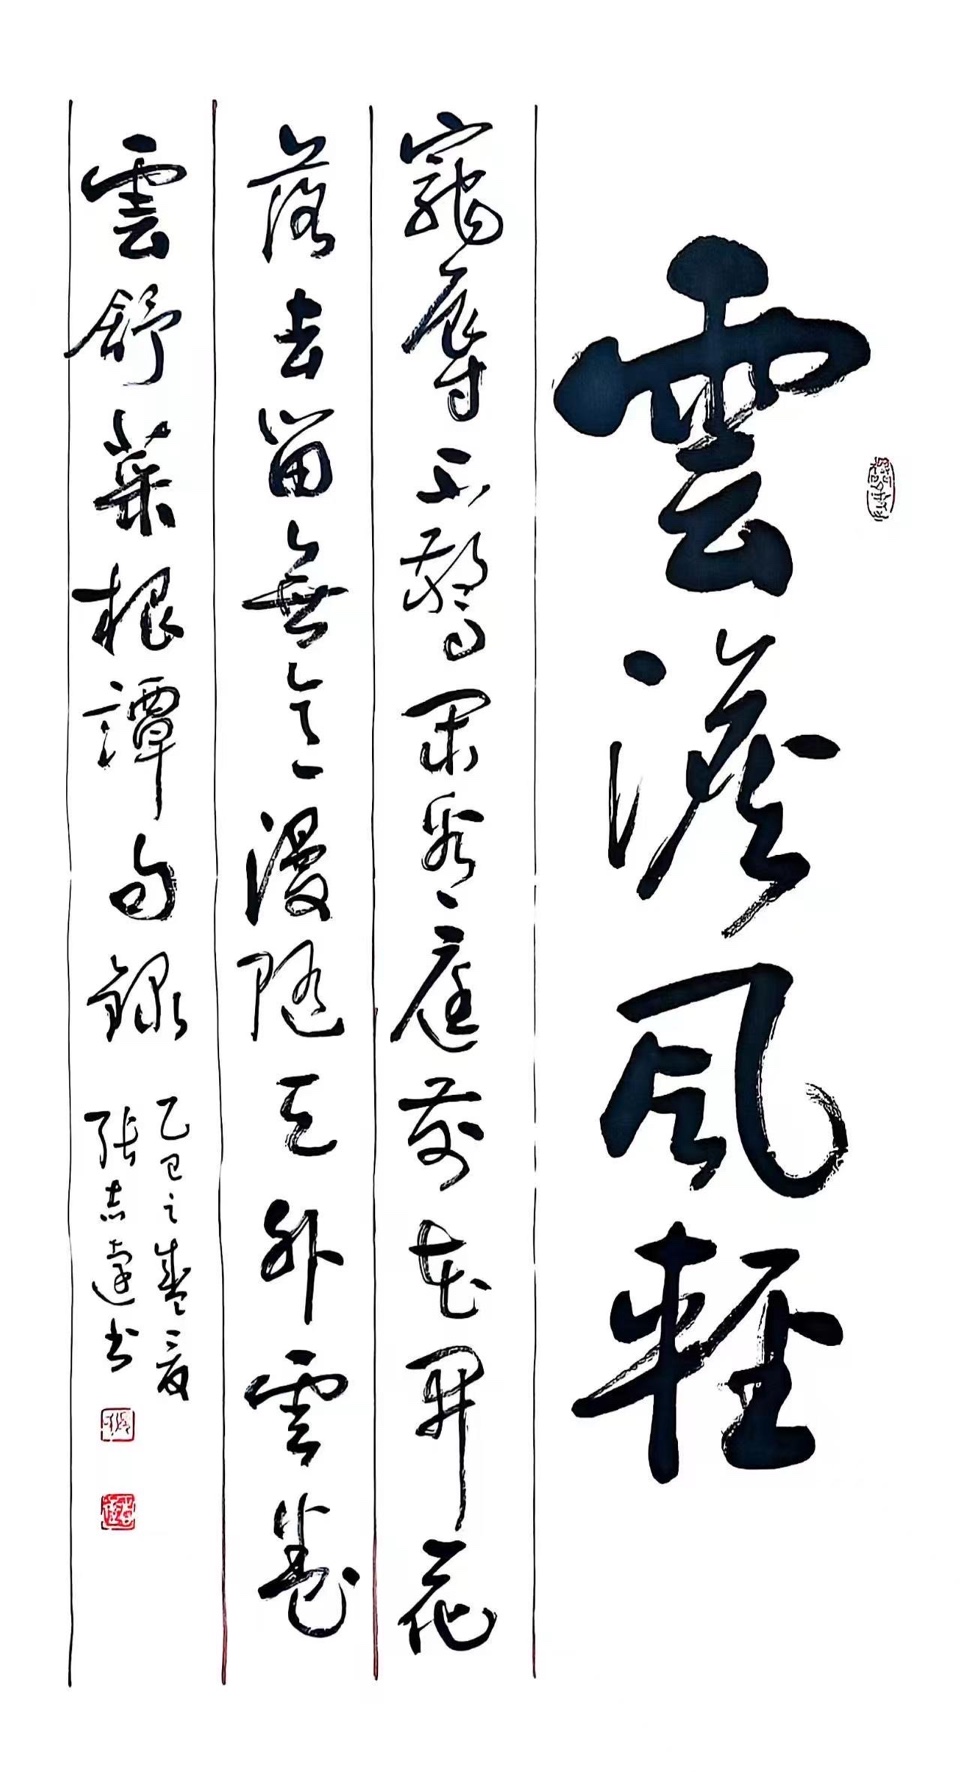 雲淡風輕
寵辱不驚閑看庭前花開花
落去留無意漫随天外雲卷
雲舒菜根譚句錄
乙巳之盛夏
張志達书